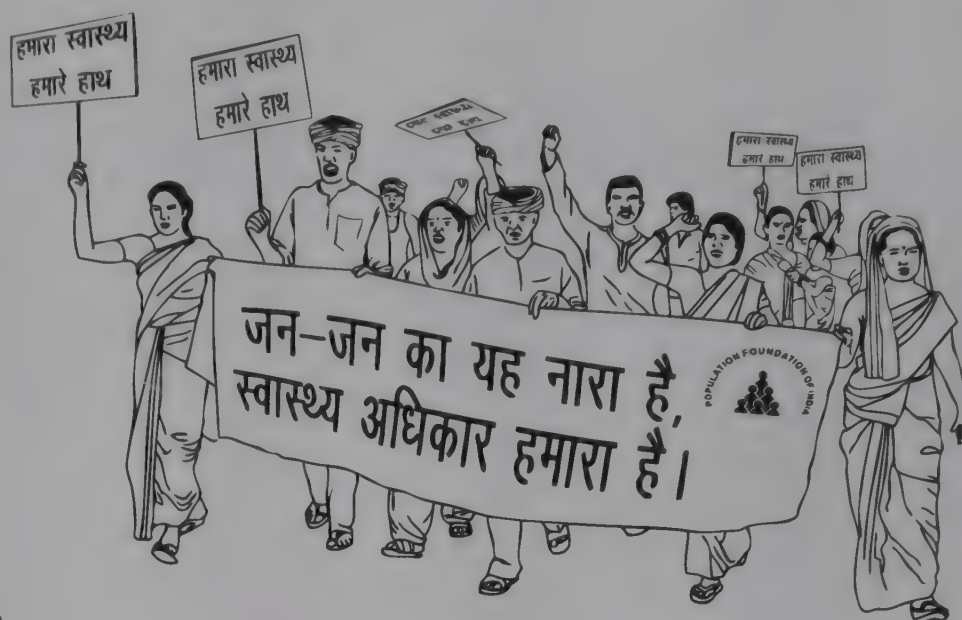 हमारा स्वास्थ्य
हमारे हाथ
हमारा स्वास्थ्य
हमारे हाथ
हमारा स्वास्थ्य
हमारे हाथ
हमारा स्वास्थ्य
हमारे हाथ
जन-जन का यह नारा है,
स्वास्थ्य अधिकार हमारा है।
POPULATION FOUNDATION OF INDIA